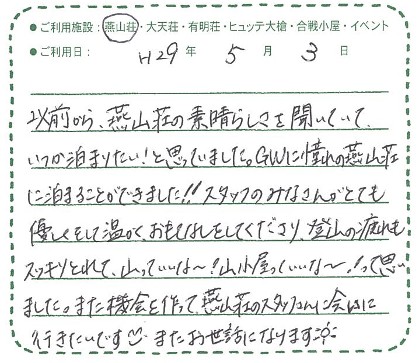 ●ご利用施設：燕山荘・大天荘・有明荘・ヒュッテ大槍・合戦小屋・イベント
●ご利用日： H29年 5月 3日
以前から、燕山荘の素晴らしさを聞いていて、
いつか泊まりたい！と思っていました。GWに憧れの燕山荘
に泊まることができました!!スタッフのみなさんがとても
優しくそして温かく、おもてなしをしてくださり、登山の疲れも
スッキリとれて、山っていいな〜！山小屋っていいな〜！って思い
ました。また機会を作って、燕山荘のスタッフさんに会いに
行きたいです またお世話になります